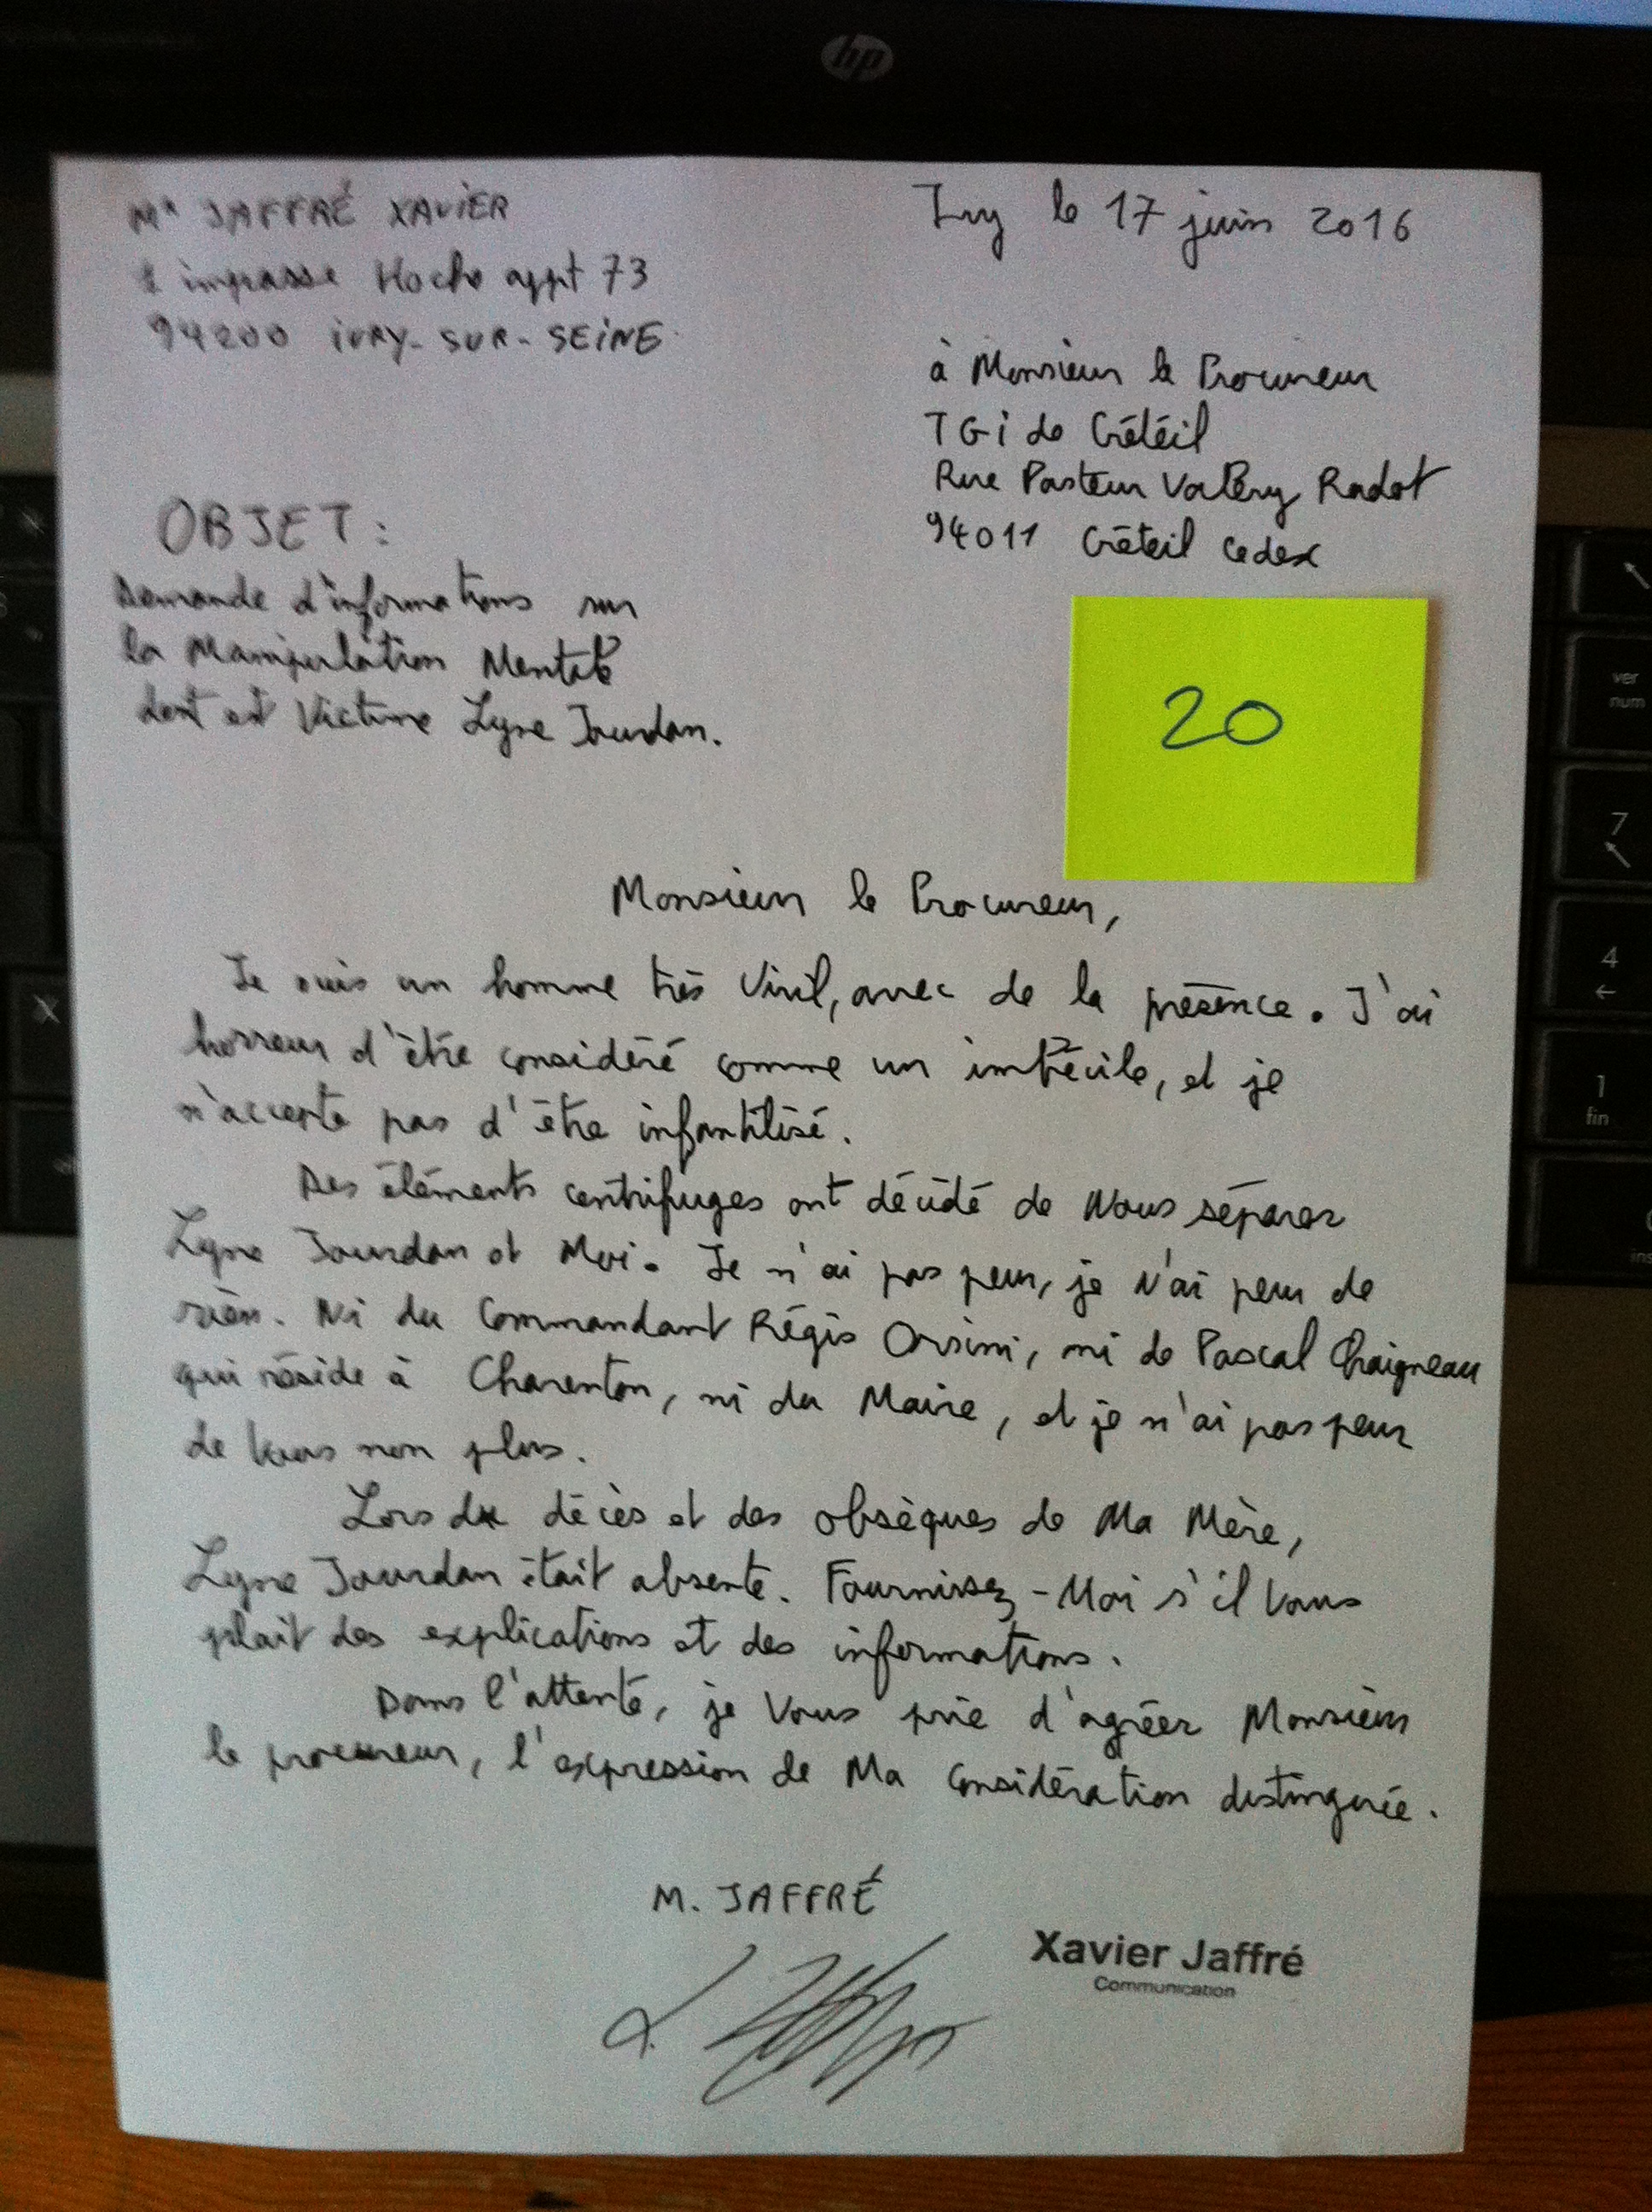 hp
Mr JAFFRÉ XAVIER
impasse Hoche appt 73
94200 IVRY-SUR-SEINE
Ivry le 17 juin 2016
à Monsieur le Procureur
TGI de Créteil
Rue Pasteur Valéry Radot
94011 Créteil Cedex
OBJET :
Demande d'informations sur
la Manipulation Mentale
dont est Victime Lyne Jourdan.
20
Monsieur le Procureur,
Je suis un homme très Viril, avec de la présence. J'ai
horreur d'être considéré comme un imbécile, et je
n'accepte pas d'être infantilisé.
Des éléments centrifuges ont décidé de Nous séparer
Lyne Jourdan et Moi. Je n'ai pas peur, je n'ai peur de
rien. Ni du Commandant Régis Orsini, ni de Pascal Chaigneau
qui réside à Charenton, ni du Maire, et je n'ai pas peur
de Vous non plus.
Lors du décès et des obsèques de Ma Mère,
Lyne Jourdan était absente. Fournissez-Moi s'il Vous
plait des explications et des informations.
Dans l'attente, je Vous prie d'agréer Monsieur
le procureur, l'expression de Ma Considération distinguée.
M. JAFFRÉ
Xavier Jaffré
Communication
ver
num
7
4
1
fin
ins